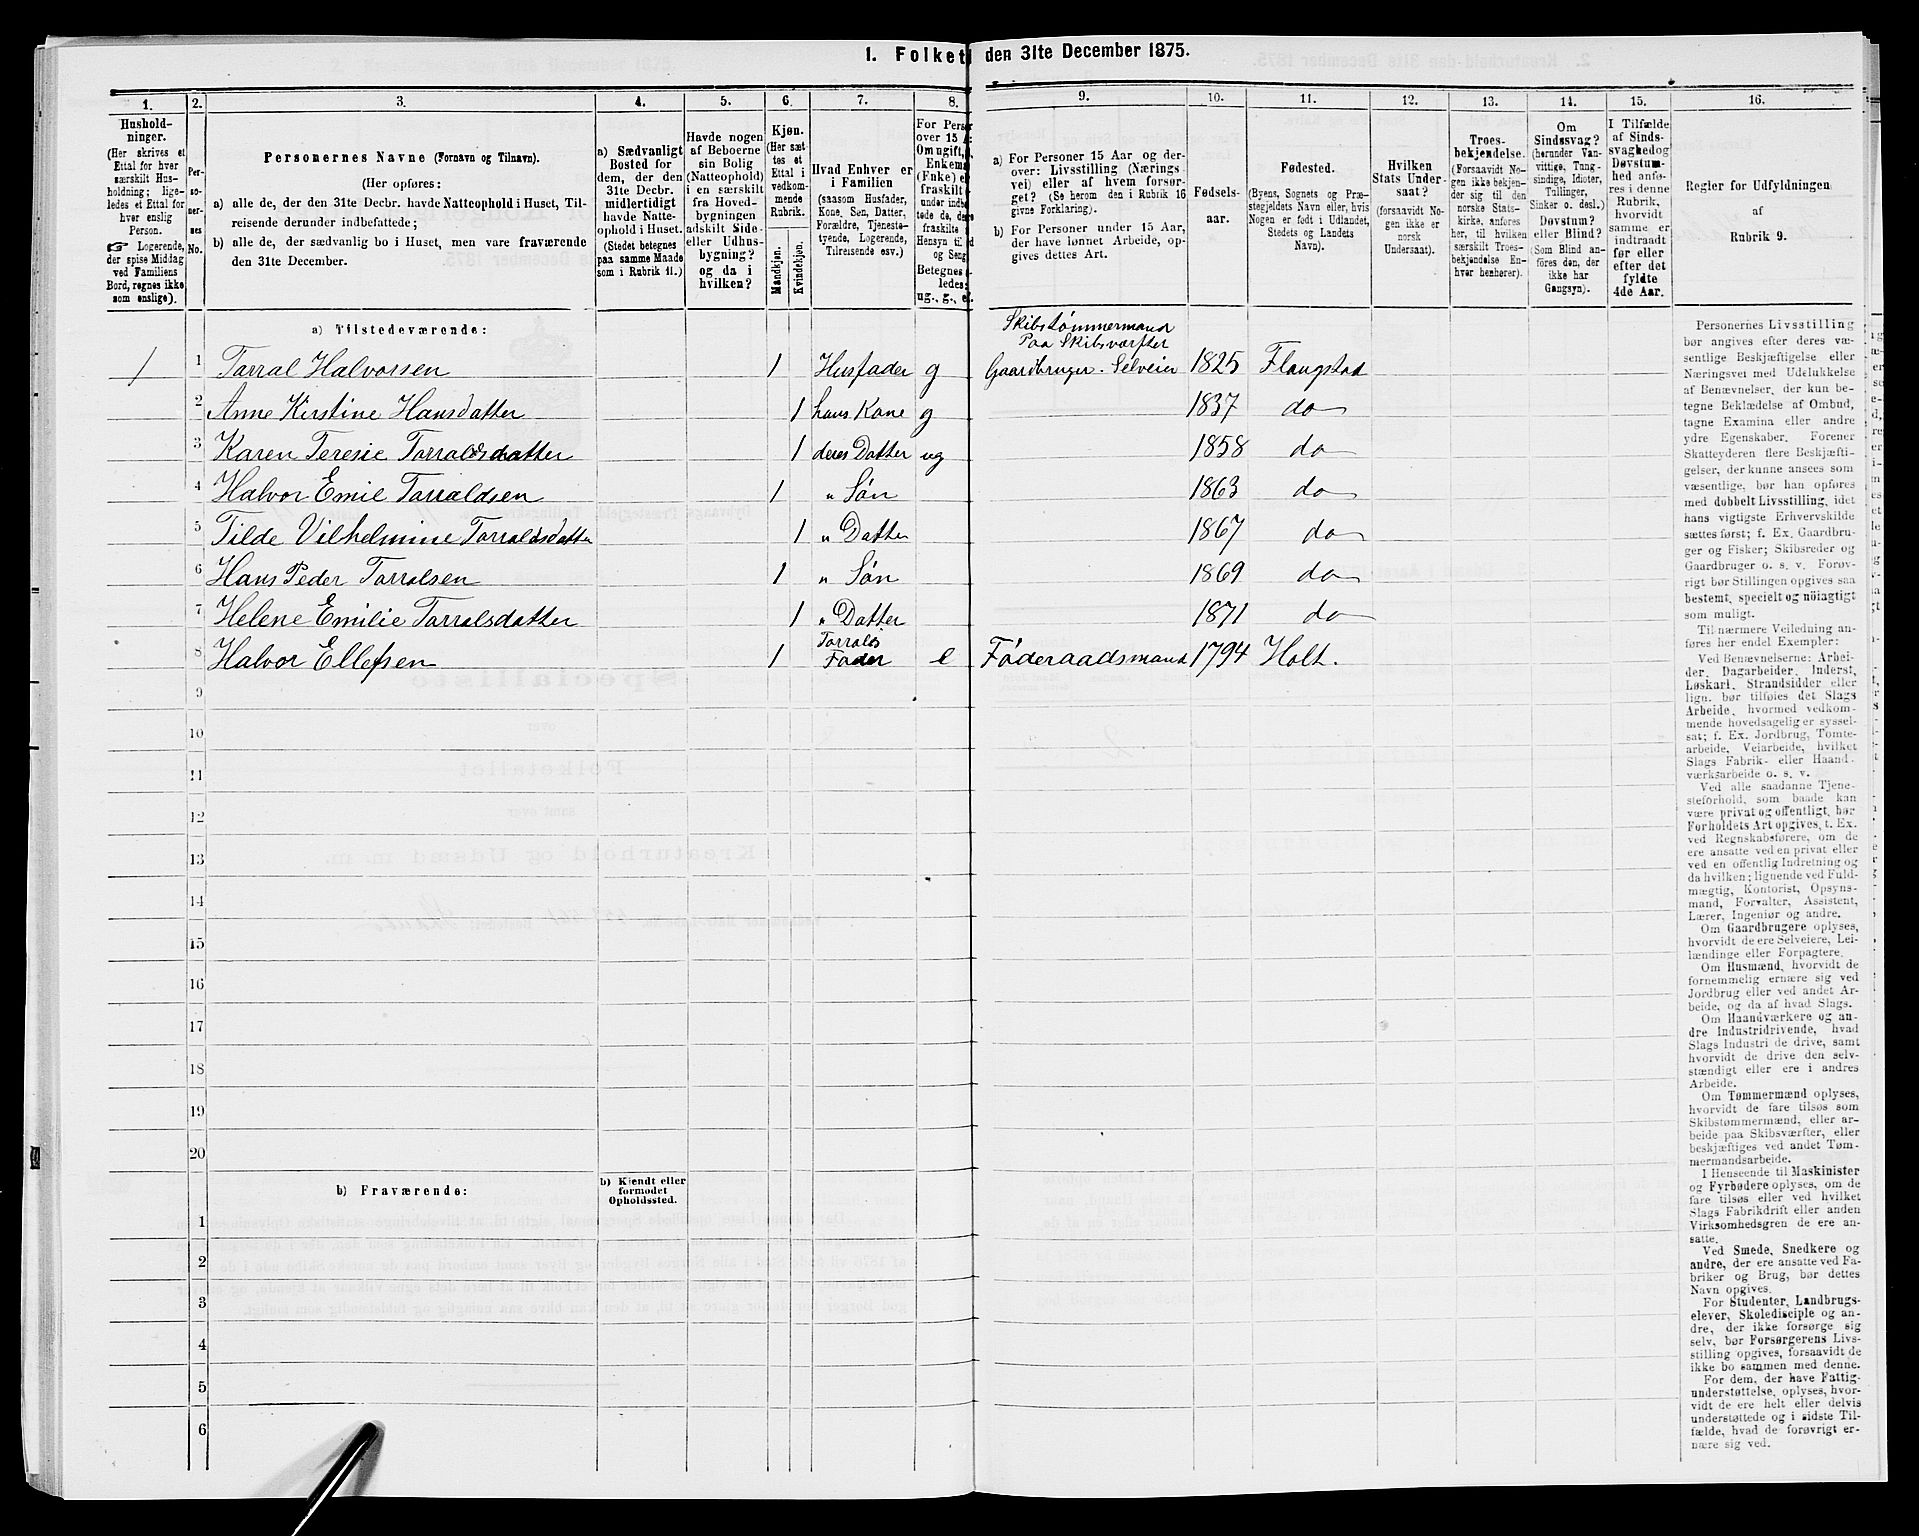 1. Folket den 31te December 1875.
1. 2. 3. 4. 5. 6. 7. 8. 9. 10. 11. 12. 13. 14. 15. 16.
Hushold-
ninger.
(Her skrives et
Ettal for hver
særskilt Hus-
holdning; lige-
ledes et Ettal for
hver enslig
Person.
☞ Logerende,
der spise Middag
ved Familiens
Bord, regnes ikke
som enslige).
Per-
so-
ner-
nes
No.
Personernes Navne (Fornavn og Tilnavn).
(Her opføres:
a) alle de, der den 31te Decbr. havde Natteophold i Huset, Til-
reisende derunder indbefattede;
b) alle de, der sædvanlig bo i Huset, men vare fraværende
den 31te December.
a) Sædvanligt
Bosted for
dem, der den
31te Decbr.
midlertidigt
havde Natte-
ophold i Huset.
(Stedet betegnes
paa samme Maade
som i Rubrik 11.)
Havde nogen
af Beboerne
sin Bolig
(Natteophold)
i en særskilt
fra Hoved-
bygningen
adskilt Side-
eller Udhus-
bygning?
og da i
hvilken?
Kjøn.
(Her sæt-
tes et
Ettal i
vedkom-
mende
Rubrik.
Mandkjøn.
Kvindekjøn.
Hvad Enhver er
i Familien
(saasom Husfader,
Kone, Søn, Datter,
Forældre, Tjeneste-
tyende, Logerende,
Tilreisende osv.)
For Perso
over 15 A
Om ugift,
Enkema
(Enke) e
fraskilt
under indb
tede de, de
fraskilte
Hensyn til
og Seng
Betegnes
ledes:
ug., g., e.
a) For Personer 15 Aar og der-
over: Livsstilling (Nærings
vei) eller af hvem forsør-
get? (Se herom den i Rubrik 16
givne Forklaring).
b) For Personer under 15 Aar,
der have lønnet Arbeide, op-
gives dettes Art.
Fødsels-
aar.
Fødested.
(Byens, Sognets og Præ-
stegjeldets Navn eller, hvis
Nogen er født i Udlandet,
Stedets og Landets
Navn).
Hvilken
Stats Under-
saat?
(forsaavidt No-
gen ikke er
norsk
Undersaat).
Troes-
bekjendelse.
(Forsaavidt No-
gen ikke bekjen-
der sig til den
norske Stats-
kirke, anføres
her, til hvilken
særskilt Troes-
bekjendelse En-
hver henhører).
Om
Sindssvag?
(herunder Van-
vittige, Tung-
sindige, Idioter,
Tullinger,
Sinker o. desl.)
Døvstum?
eller Blind?
(Som Blind an-
føres den, der
ikke har
Gangsyn).
I Tilfælde
af Sinds-
svaghed og
Døvstum-
hed anfø-
res i denne
Rubrik,
hvorvidt
samme er
indtraadt
før eller
efter det
fyldte
4de Aar.
Regler for Udfyldningen
af
Rubrik 9.
a) Tilstedeværende:
Skibstømmermand
Paa Skibsværfter
1 1 Tarral Halvorsen 1 Husfader g Gaardbruger. Selveier 1825 Flaugstad
2 Anne Kirstine Hansdatter 1 hans Kone g 1837 do
3 Karen Teresie Tarraldsdatter 1 deres Datter ug 1858 do
4 Halvor Emil Tarraldsen 1 " Søn 1863 do
5 Tilde Vilhelmine Tarraldsdatter 1 " Datter 1867 do
6 Hans Peder Tarralsen 1 " Søn 1869 do
7 Helene Emilie Tarralsdatter 1 " Datter 1871 do
8 Halvor Ellefsen 1 Tarrals Fader e Føderaadsmand 1794 Holt.
9
10
11
12
13
14
15
16
17
18
19
20
b) Fraværende:
b) Kjendt eller
formodet
Opholdssted.
1
2
3
4
5
6
Personernes Livsstilling
bør angives efter deres væ-
sentlige Beskjæftigelse eller
Næringsvei med Udelukkelse
af Benævnelser, der kun be-
tegne Beklædelse af Ombud,
tagne Examina eller andre
ydre Egenskaber. Forener
Skatteyderen flere Beskjæfti-
gelser, der kunne ansees som
væsentlige, bør han opføres
med dobbelt Livsstilling, idet
hans vigtigste Erhvervskilde
sættes først; f. Ex. Gaardbru-
ger og Fisker; Skibsreder og
Gaardbruger o. s. v. Forøv-
rigt bør Stillingen opgives saa
bestemt, specielt og nöiagtigt
som muligt.
Til nærmere Veiledning an-
føres her endel Exempler:
Ved Benævnelserne: Arbei-
der, Dagarbeider, Inderst,
Løskarl, Strandsidder eller
lign. bør tilføies det Slags
Arbeide, hvormed vedkom-
mende hovedsagelig er syssel-
sat; f. Ex. Jordbrug, Tomte-
arbeide, Veiarbeide, hvilket
Slags Fabrik- eller Haand-
værksarbeide o. s. v.
Ved alle saadanne Tjene-
steforhold, som baade kan
være privat og offentligt, bør
Forholdets Art opgives, t. Ex.
ved Regnskabsførere, om de
ere ansatte ved en privat eller
ved en offentlig Indretning og
da hvilken; lignende ved Fuld-
mægtig, Kontorist, Opsyns-
mand, Forvalter, Assistent,
Lærer, Ingeniør og andre.
Om Gaardbrugere oplyses,
hvorvidt de ere Selveiere, Lei-
lændinge eller Forpagtere.
Om Husmænd, hvorvidt de
fornemmelig ernære sig ved
Jordbrug eller ved andet Ar-
beide, og da af hvad Slags.
Om Haandværkere og an-
dre Industridrivende, hvad
Slags Industri de drive, samt
hvorvidt de drive den selv-
stændigt eller ere i andres
Arbeide.
Om Tømmermænd oplyses,
hvorvidt de fare tilsøs som
Skibstømmermænd, eller ar-
beide paa Skibsværfter, eller
beskjæftiges ved andet Tøm-
mermandsarbeide.
I Henseende til Maskinister
og Fyrbødere oplyses, om de
fare tilsøs eller ved hvilket
Slags Fabrikdrift eller anden
Virksomhedsgren de ere an-
satte.
Ved Smede, Snedkere og
andre, der ere ansatte ved Fa-
briker og Brug, bør dettes
Navn opgives.
For Studenter, Landbrugs-
elever, Skoledisciple og an-
dre, der ikke forsørge sig
selv, bør Forsørgerens Livs-
stilling opgives, forsaavidt de
ikke bo sammen med denne.
For dem, der have Fattig-
understøttelse, oplyses, hvor-
vidt de ere helt eller delvis
understøttede og i sidste Til-
fælde, hvad de forøvrigt er-
nære sig ved.